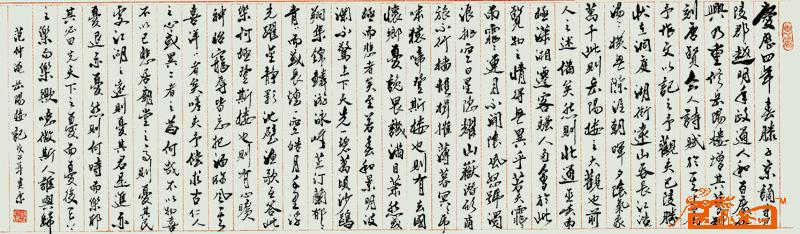 慶曆四年春滕子京謫守巴
陵郡越明年政通人和百廢具
興乃重修岳陽樓增其舊制
刻唐賢今人詩賦於其上屬
予作文以記之予觀夫巴陵勝
狀在洞庭一湖銜遠山吞長江浩浩
湯湯橫無際涯朝暉夕陰氣象
萬千此則岳陽樓之大觀也前
人之述備矣然則北通巫峽南
極瀟湘遷客騷人多會於此
覽物之情得無異乎若夫霪
雨霏霏連月不開陰風怒號濁
浪排空日星隱耀山嶽潛形商
旅不行檣傾楫摧薄暮冥冥虎
嘯猿啼登斯樓也則有去國
懷鄉憂讒畏譏滿目蕭然感
極而悲者矣至若春和景明波
瀾不驚上下天光一碧萬頃沙鷗
翔集錦鱗游泳岸芷汀蘭郁郁
青青而或長煙一空皓月千里浮
光躍金靜影沉璧漁歌互答此
樂何極登斯樓也則有心曠
神怡寵辱皆忘把酒臨風其
喜洋洋者矣嗟夫予嘗求古仁人
之心或異二者之為何哉不以物喜
不以己悲居廟堂之高則憂其民
處江湖之遠則憂其君是進亦
憂退亦憂然則何時而樂耶
其必曰先天下之憂而憂後天下
之樂而樂歟噫微斯人吾誰與歸
范仲淹岳陽樓記